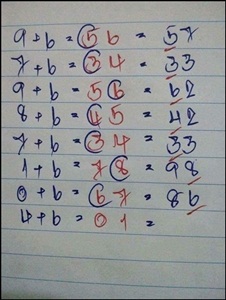 9 + b = 5 6 = 57
7 + b = 3 4 = 33
9 + b = 5 6 = 62
8 + b = 4 5 = 42
7 + b = 3 4 = 33
1 + b = 7 8 = 98
0 + b = 6 7 = 86
4 + b = 0 1 =